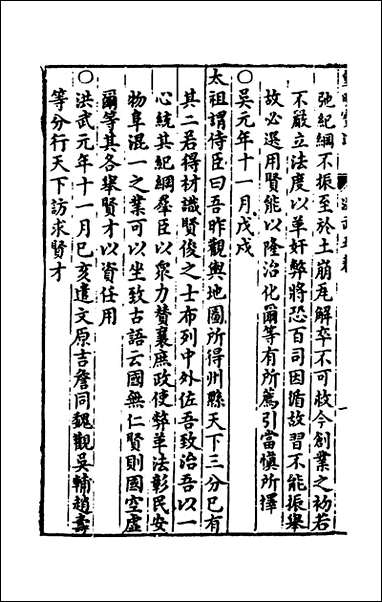 弛紀綱不振至於土崩瓦解卒不可救今創業之初若
不嚴立法度以革奸弊將恐百司因循故習不能振舉
故必選用賢能以隆治化爾等有所薦引當慎所擇
○吳元年十一月戊戌
太祖謂侍臣曰吾昨觀輿地圖所得州縣天下三分已有
其二若得材識賢俊之士布列中外佐吾致治吾以一
心統其紀綱羣臣以衆力賛襄庶政使弊革法彰民安
物阜混一之業可以坐致古語云國無仁賢則國空虛
爾等其各舉賢才以資任用
○洪武元年十一月己亥遣文原吉詹同魏觀吳輔趙壽
等分行天下訪求賢才